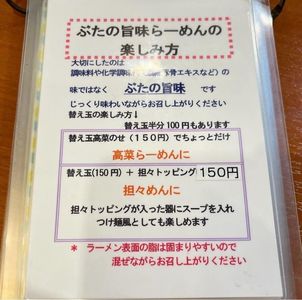 ぶたの旨味らーめんの
楽しみ方
大切にしたのは
調味料や化学調味 骨エキスなど）の
味ではなく ぶたの旨味 です
じっくり味わいながらお召し上がりください
替え玉の楽しみ方↓
替え玉半分100円もあります
替え玉高菜のせ（１５０円）でちょっとだけ
高菜らーめんに
替え玉(150円) ＋ 担々トッピング150円
担々めんに
担々トッピングが入った器にスープを入れ
つけ麺風としても楽しめます
＊ ラーメン表面の脂は固まりやすいので
混ぜながらお召し上がりください